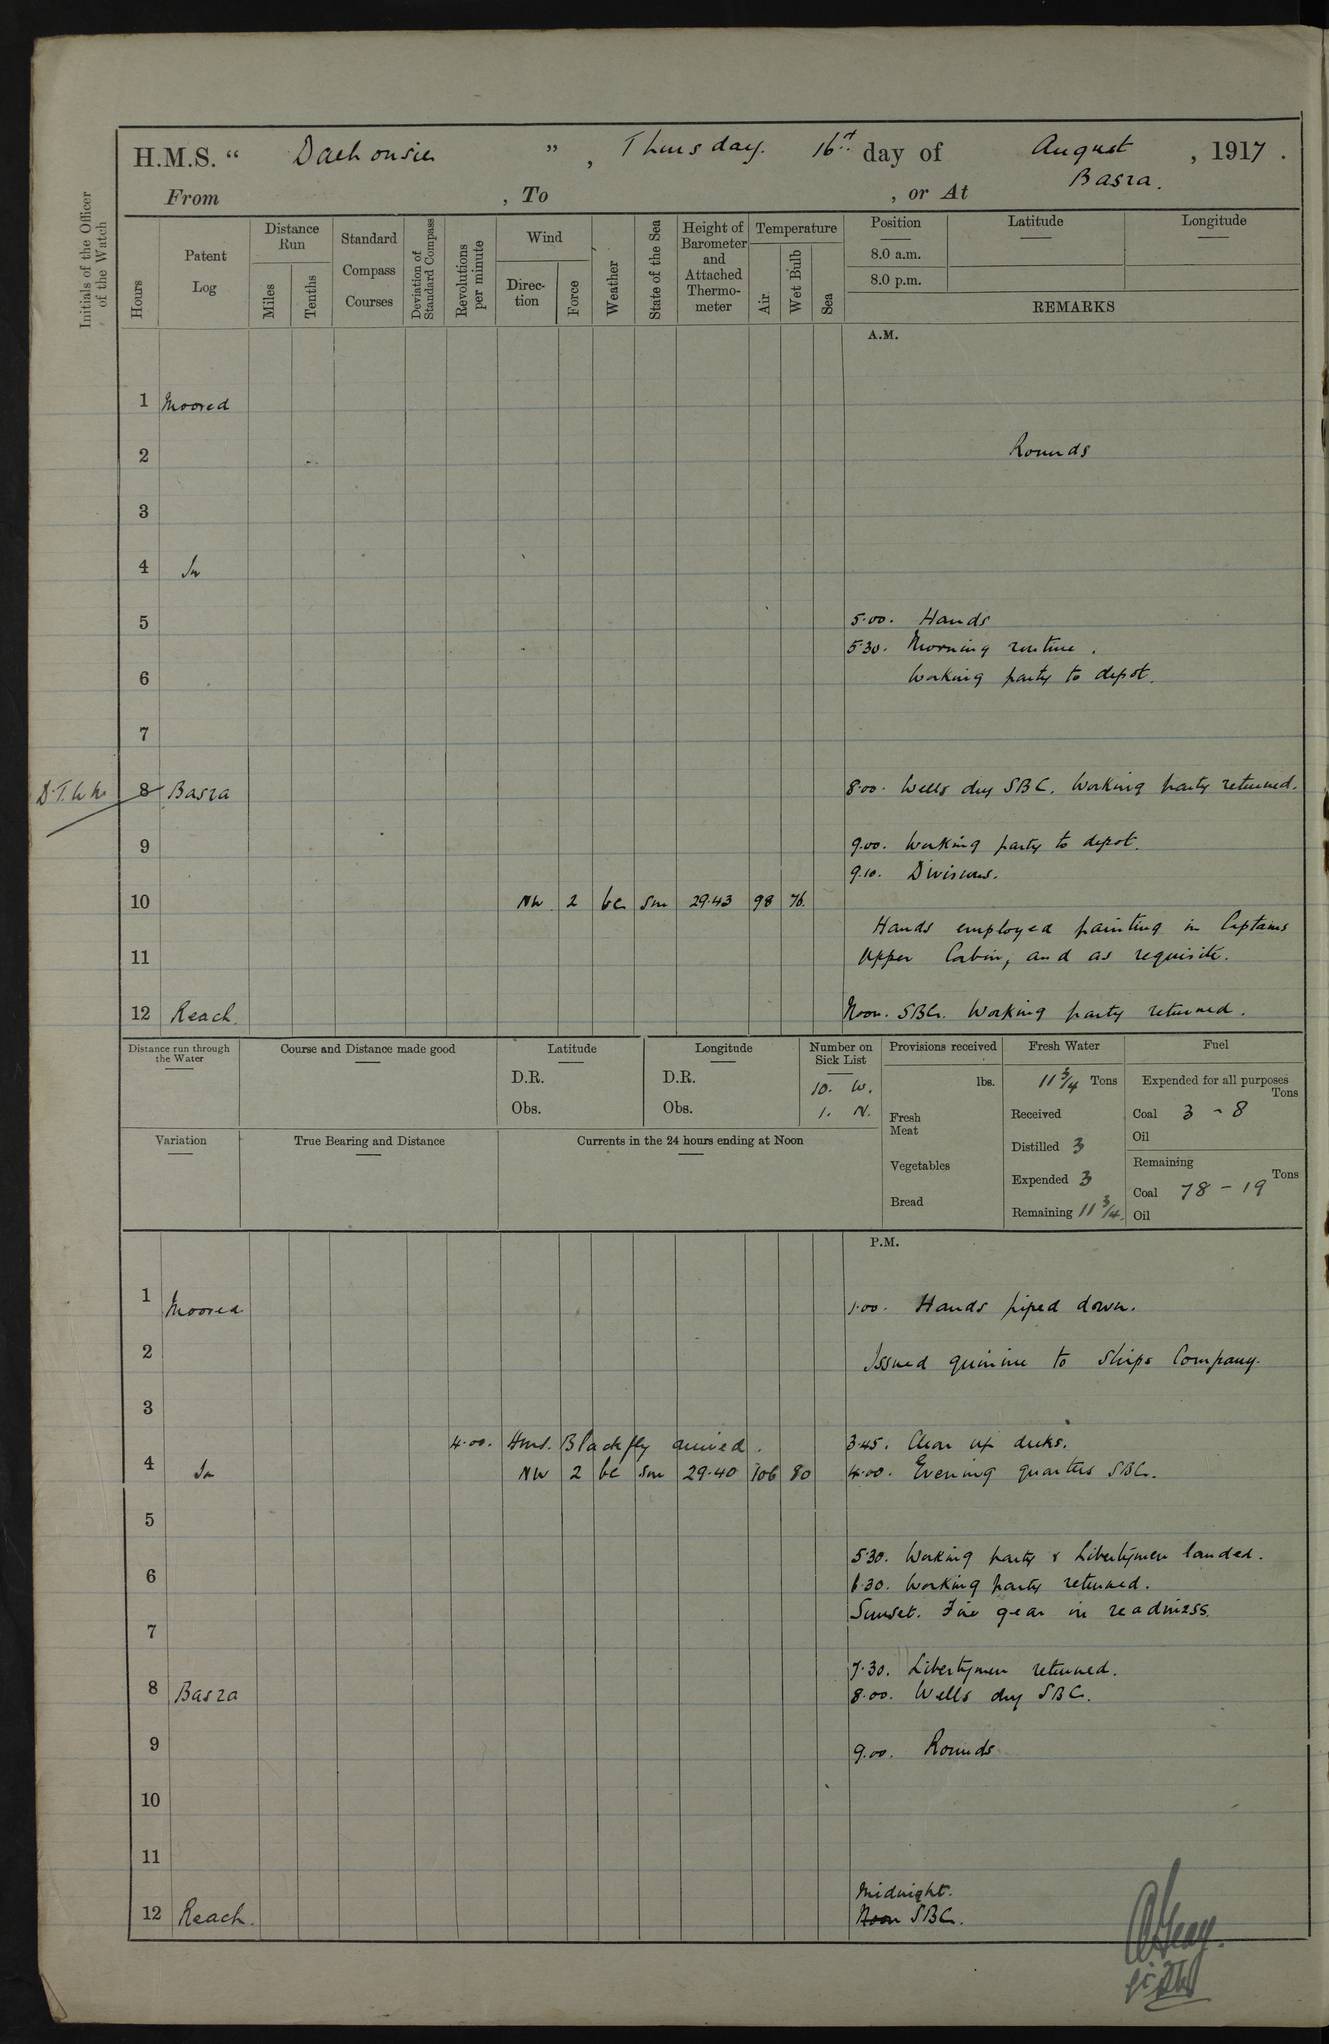 H.M.S. " Dalhousie " , Thursday. 16th day of August , 1917 .
From , To , or At Basra.
Initials of the Officer of the Watch
Hours
Patent Log
Distance Run
Miles
Tenths
Standard Compass Courses
Deviation of Standard Compass
Revolutions per minute
Wind
Direction
Force
Weather
State of the Sea
Height of Barometer and Attached Thermometer
Temperature
Air
Wet Bulb
Sea
Position
Latitude
Longitude
8.0 a.m.
8.0 p.m.
REMARKS
A.M.
1 Moored
2 Rounds
3
4 In
5 5.00. Hands
5.30. Morning routine.
6 Working party to depot.
7
8 Basra 8.00. Wells dry SBC. Working party returned.
9 9.00. Working party to depot.
9.10. Divisions.
10 NW 2 bc Sm 29.43 98 76.
Hands employed painting in Captains
11 Upper Cabin, and as requisite.
12 Reach. Noon. SBC. Working party returned.
Distance run through the Water
Course and Distance made good
Latitude
D.R.
Obs.
Longitude
D.R.
Obs.
Number on Sick List
10. W.
1. N.
Provisions received
lbs.
Fresh Meat
Vegetables
Bread
Fresh Water
11 3/4 Tons
Received
Distilled 3
Expended 3
Remaining 11 3/4
Fuel
Expended for all purposes
Tons
Coal 3 - 8
Oil
Remaining
Tons
Coal 78 - 19
Oil
Variation
True Bearing and Distance
Currents in the 24 hours ending at Noon
P.M.
1 Moored 1.00. Hands piped down.
2 Issued quinine to Ships Company.
3
4.00. HMS. Blackfly arrived. 3.45. Clear up decks.
4 In NW 2 bc Sm 29.40 106 80 4.00. Evening quarters SBC.
5
5.30. Working party & Libertymen landed.
6 6.30. Working party returned.
Sunset. Fire gear in readiness.
7
7.30. Libertymen returned.
8 Basra 8.00. Wells dry SBC.
9 9.00. Rounds
10
11
Midnight.
12 Reach. Noon SBC.